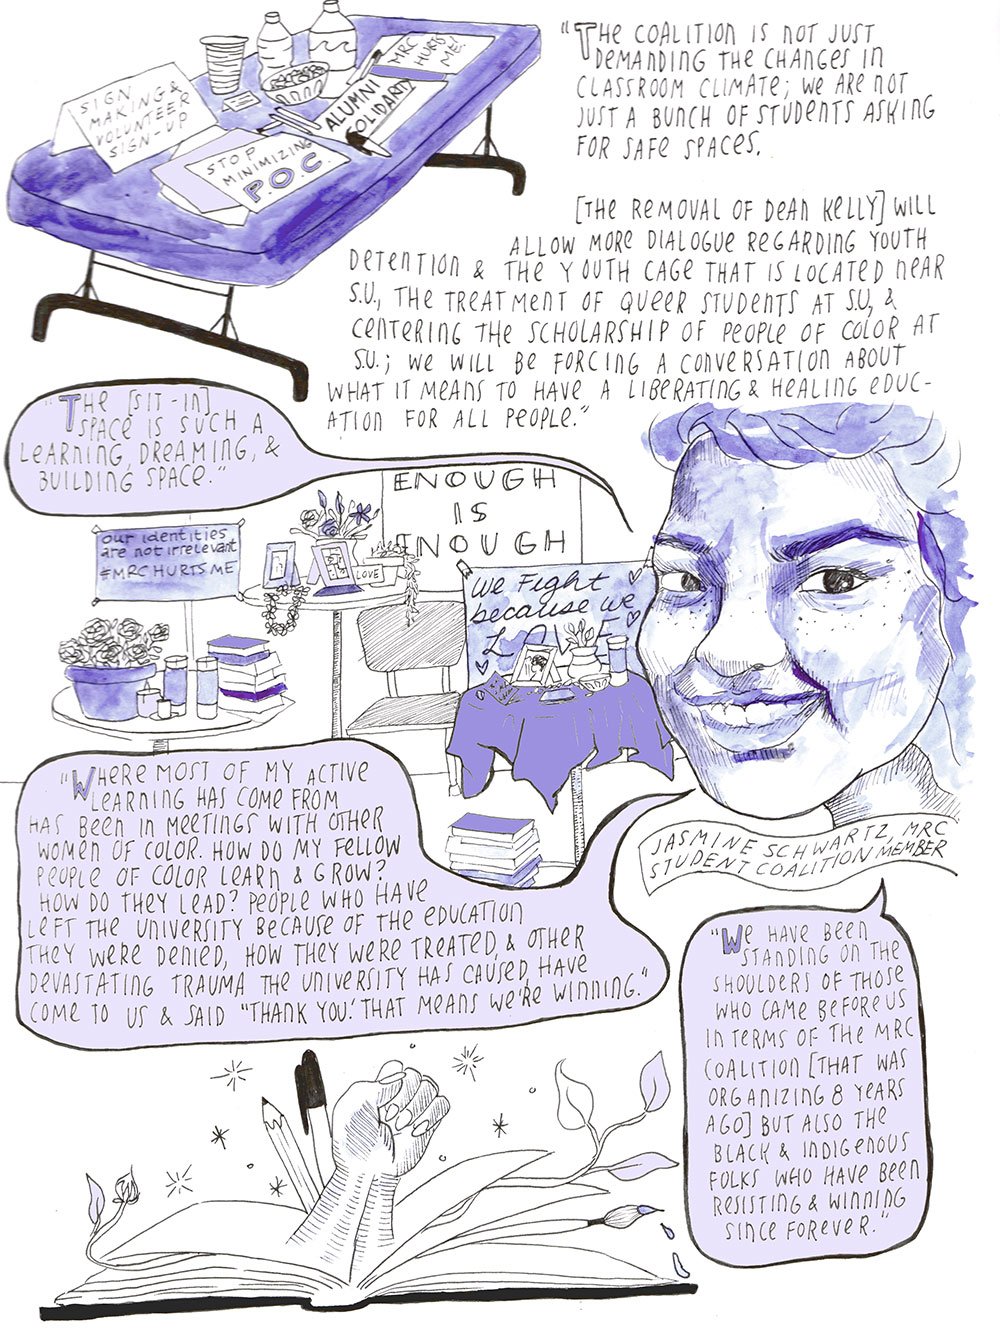 SIGN
MAKING &
VOLUNTEER
SIGN-UP
STOP
MINIMIZING
P.O.C.
ALUMNI
SOLIDARITY
MRC
HURTS
ME!
"THE COALITION IS NOT JUST
DEMANDING THE CHANGES IN
CLASSROOM CLIMATE; WE ARE NOT
JUST A BUNCH OF STUDENTS ASKING
FOR SAFE SPACES.
[THE REMOVAL OF DEAN KELLY] WILL
ALLOW MORE DIALOGUE REGARDING YOUTH
DETENTION & THE YOUTH CAGE THAT IS LOCATED NEAR
S.U., THE TREATMENT OF QUEER STUDENTS AT S.U, &
CENTERING THE SCHOLARSHIP OF PEOPLE OF COLOR AT
S.U.; WE WILL BE FORCING A CONVERSATION ABOUT
WHAT IT MEANS TO HAVE A LIBERATING & HEALING EDUC-
ATION FOR ALL PEOPLE."
"THE [SIT-IN]
SPACE IS SUCH A
LEARNING, DREAMING, &
BUILDING SPACE."
ENOUGH
IS
ENOUGH
our identities
are not irrelevant
#MRCHURTSME
LOVE
We Fight
because we
LOVE
"WHERE MOST OF MY ACTIVE
LEARNING HAS COME FROM
HAS BEEN IN MEETINGS WITH OTHER
WOMEN OF COLOR. HOW DO MY FELLOW
PEOPLE OF COLOR LEARN & GROW?
HOW DO THEY LEAD? PEOPLE WHO HAVE
LEFT THE UNIVERSITY BECAUSE OF THE EDUCATION
THEY WERE DENIED, HOW THEY WERE TREATED, & OTHER
DEVASTATING TRAUMA THE UNIVERSITY HAS CAUSED, HAVE
COME TO US & SAID "THANK YOU.' THAT MEANS WE'RE WINNING."
JASMINE SCHWARTZ, MRC
STUDENT COALITION MEMBER
"WE HAVE BEEN
STANDING ON THE
SHOULDERS OF THOSE
WHO CAME BEFORE US
IN TERMS OF THE MRC
COALITION [THAT WAS
ORGANIZING 8 YEARS
AGO] BUT ALSO THE
BLACK & INDIGENOUS
FOLKS WHO HAVE BEEN
RESISTING & WINNING
SINCE FOREVER."